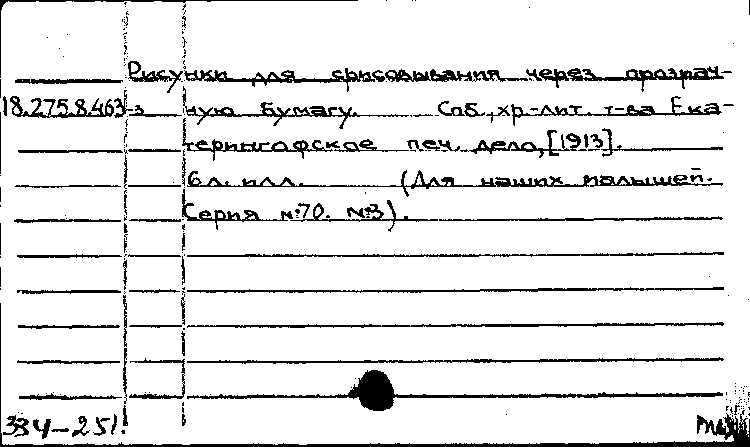 Рисунки для срисовывания через прозрач-
18.275.8.463-з ную бумагу. Спб., хр.-лит. т-ва Ека-
терингофское печ. дело, [1913].
6 л. илл. (Для наших малышей.
Серия №70. №3).
334-251.